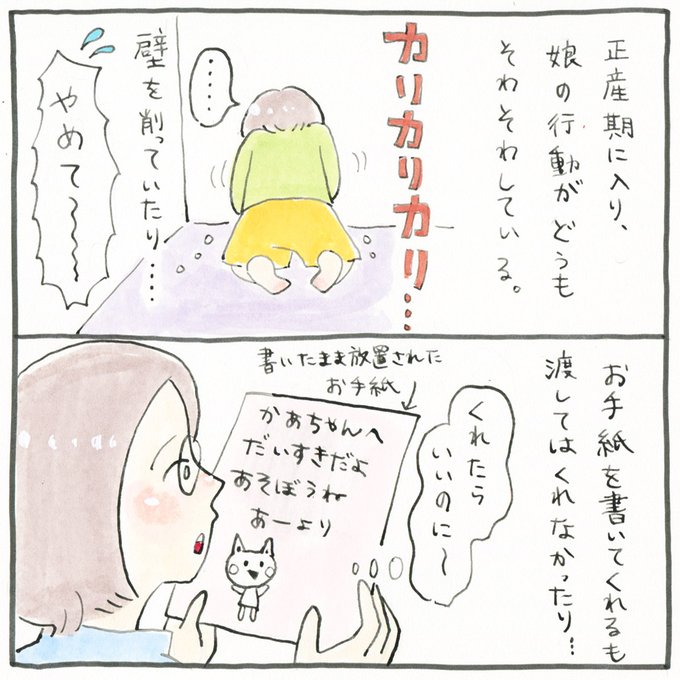 正産期に入り、
娘の行動がどうも
そわそわしている。
カリカリカリ…
……
壁を削っていたり…
やめて〜〜〜
お手紙を書いてくれるも
渡してはくれなかったり…
くれたら
いいのに〜
書いたまま放置された
お手紙
かあちゃんへ
だいすきだよ
あそぼうね
あーより